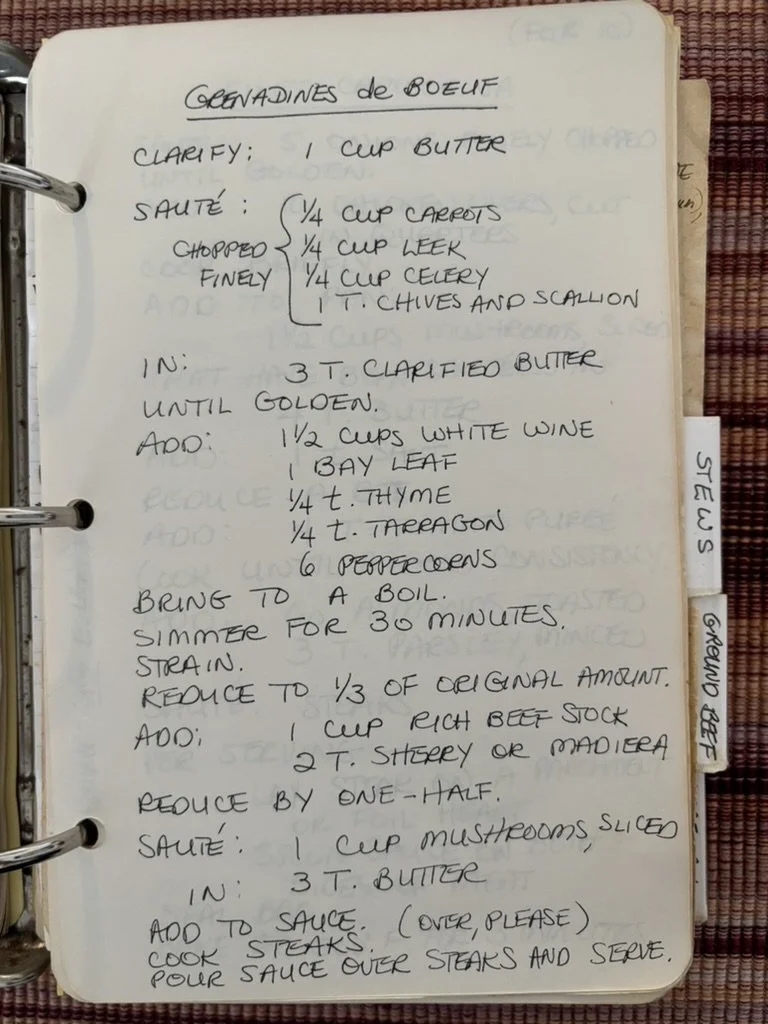 GRENADINES de BOEUF
CLARIFY: 1 CUP BUTTER
SAUTÉ: 1/4 CUP CARROTS
CHOPPED 1/4 CUP LEEK
FINELY 1/4 CUP CELERY
1 T. CHIVES AND SCALLION
IN: 3 T. CLARIFIED BUTTER
UNTIL GOLDEN.
ADD: 1 1/2 CUPS WHITE WINE
1 BAY LEAF
1/4 t. THYME
1/4 t. TARRAGON
6 PEPPERCORNS
BRING TO A BOIL.
SIMMER FOR 30 MINUTES.
STRAIN.
REDUCE TO 1/3 OF ORIGINAL AMOUNT.
ADD: 1 CUP RICH BEEF STOCK
2 T. SHERRY OR MADIERA
REDUCE BY ONE-HALF.
SAUTÉ: 1 CUP MUSHROOMS, SLICED
IN: 3 T. BUTTER
ADD TO SAUCE. (OVER, PLEASE)
COOK STEAKS.
POUR SAUCE OVER STEAKS AND SERVE.
STEWS
GROUND BEEF